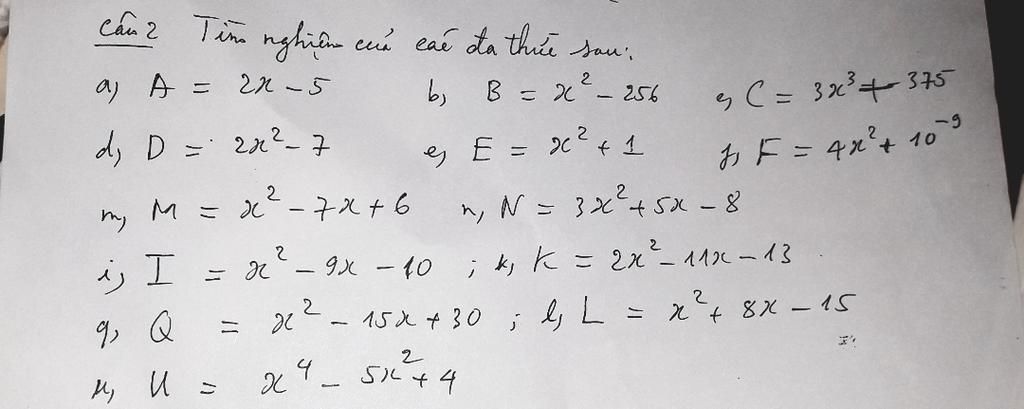 Câu 2 Tìm nghiệm của các đa thức sau:
a, A = 2x - 5 b, B = x² - 256 c, C = 3x³ + 375
d, D = 2x² - 7 e, E = x² + 1 f, F = 4x² + 10⁻⁹
m, M = x² - 7x + 6 n, N = 3x² + 5x - 8
i, I = x² - 9x - 10 ; k, K = 2x² - 11x - 13
q, Q = x² - 15x + 30 ; l, L = x² + 8x - 15
u, U = x⁴ - 5x² + 4